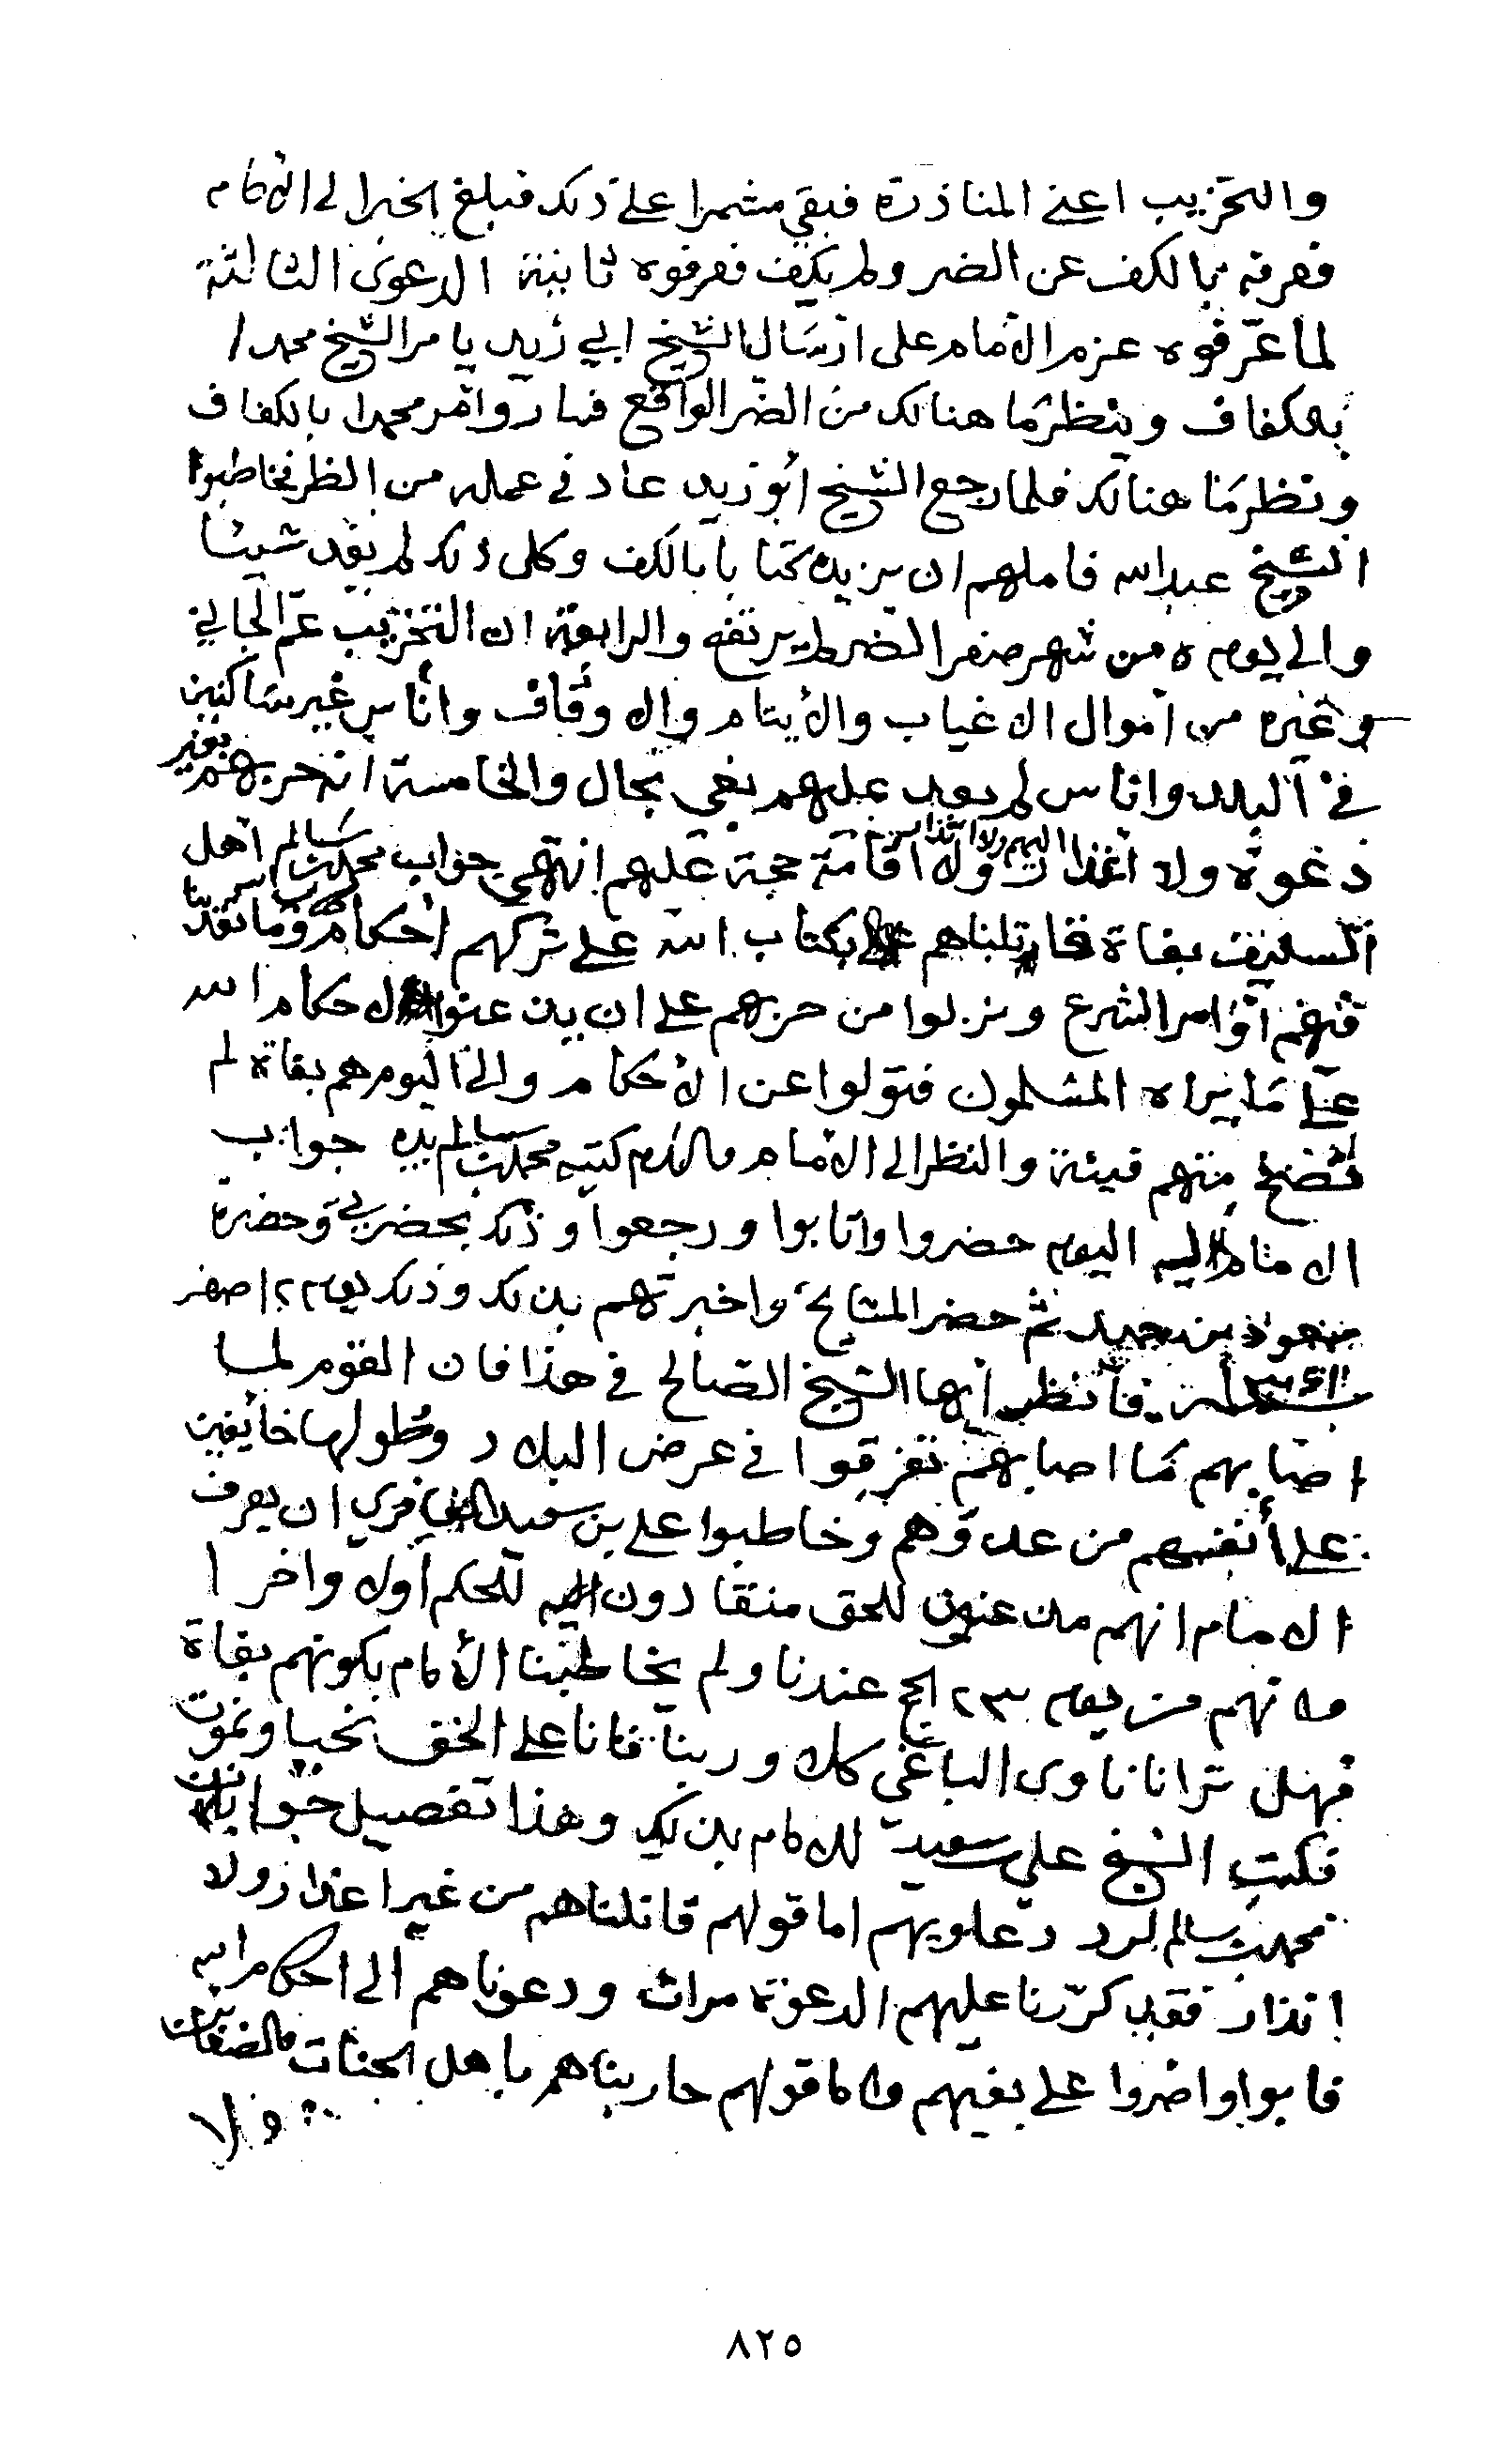 والتخريب اعني المناذرة فبقي مشمرا على ذلك فبلغ الخبر الى الامام
فعرفه بالكف عن الضر ولم يكف فعرفوه ثانية الدعوى الثالثة
لما عرفوه عزم الامام على ارسال الشيخ ابي زيد يامر الشيخ محمدا
بالكفاف وينظر ما هنالك من الضر الواقع فسار وامر محمدا بالكفاف
ونظر ما هنالك فلما رجع الشيخ ابو زيد عاد في عمله من الظر فخاطبوا
الشيخ عبدالله فاملهم ان يزيده كتابا بالكف وكل ذلك لم يفد شيئا
والى يوم ٥ من شهر صفر الضر لم يرتفع والرابعة ان التخريب عم الجاني
وغيره من اموال الاغياب والايتام والاوقاف واناس غير ساكنين
في البلد واناس لم يعد عليهم بغي بحال والخامسة انه حربهم بغير
دعوة ولا اعذار اليهم ولا انذار ولا اقامة حجة عليهم انتهى جواب محمد بن سالم اهل
السليف بغاة قاتلناهم بكتاب الله على تركهم احكام
فيهم اوامر الشرع ونزلوا من حربهم على ان يذعنوا لاحكام الله
على ما يراه المسلمون فتولوا عن الاحكام والى اليوم هم بغاة لم
تضح منهم فيئة والنظر الى الامام والسلام كتبه محمد بن سالم بيده جواب
الامام اليه اليوم حضروا وتابوا ورجعوا وذلك بحضرتي وحضرة
بن حميد ثم حضر المشايخ واخبرتهم بذلك وذلك يوم ١٢ صفر
فانظر ايها الشيخ الصالح في هذا فان القوم لما
اصابهم ما اصابهم تفرقوا في عرض البلاد وطولها خائفين
على انفسهم من عدوهم وخاطبوا علي بن سعيد ان يعرف
الامام انهم مذعنون للحق منقادون للحكم اولا واخرا
وانهم من يوم ٢٣ الحج عندنا ولم يخاطبنا الامام بكونهم بغاة
فهل ترانا ناوى الباغي كلا وربنا فانا على الحق نحيا ونموت
فكتب الشيخ علي سعيد للامام بذلك وهذا تفصيل جواب
محمد بن سالم لرد دعاويهم اما قولهم قاتلناهم من غير اعذار ولا
انذار فقد كررنا عليهم الدعوة مرات ودعوناهم الى احكام الله
فابوا واصروا على بغيهم واما قولهم حاربناهم باهل الجنات والضغائن
ولا
٨٢٥